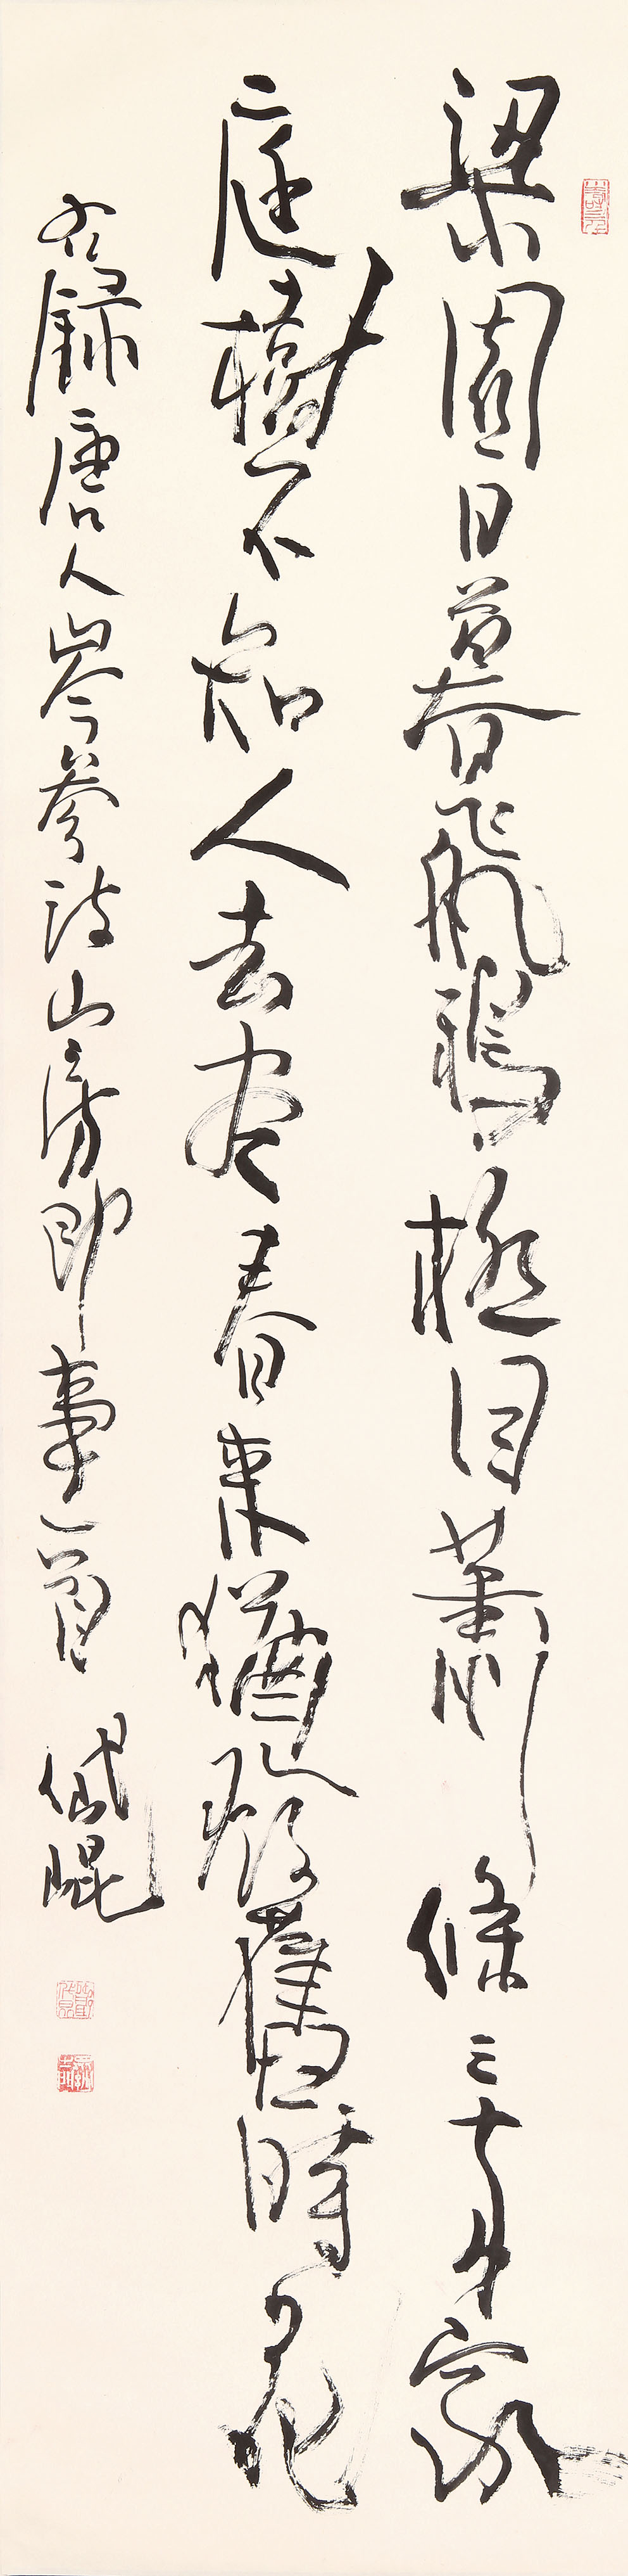 梁園日暮飛鴉極目蕭條三兩家
庭樹不知人去盡春來猶發舊時花
右錄唐人岑參詩山房即事一首 岱崐